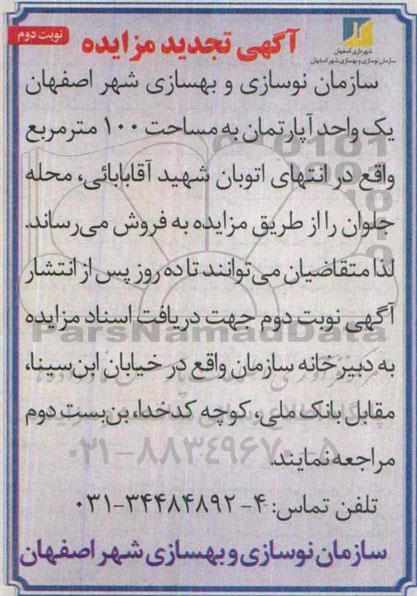 نوبت دوم
شهرداری اصفهان
سازمان نوسازی و بهسازی شهر اصفهان
آگهی تجدید مزایده
سازمان نوسازی و بهسازی شهر اصفهان
یک واحد آپارتمان به مساحت ۱۰۰ مترمربع
واقع در انتهای اتوبان شهید آقابابائی، محله
جلوان را از طریق مزایده به فروش می‌رساند.
لذا متقاضیان می‌توانند تا ده روز پس از انتشار
آگهی نوبت دوم جهت دریافت اسناد مزایده
ParsNamadData
به دبیرخانه سازمان واقع در خیابان ابن‌سینا،
مقابل بانک ملی، کوچه کدخدا، بن‌بست دوم
۰۲۱-۸۸۳۴۹۶۷۰-۵
مراجعه نمایند.
تلفن تماس: ۴-۳۴۴۸۴۸۹۲-۰۳۱
سازمان نوسازی و بهسازی شهر اصفهان